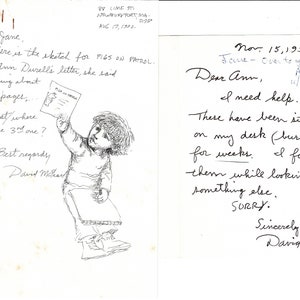 88 LIME ST.
NEWBURYPORT, MA.
AUG 17, 1982
Jane,
ere is the sketch for PIGS ON PATROL.
nn Durell's letter, she said
ing about
pages,
where
3rd one?
Best regards,
David
Nov. 15, 19
Dear Ann,
I need help.
These have been si
on my desk (bur
for weeks. I fo
them while lookin
something else.
SORRY.
Sincerely
David